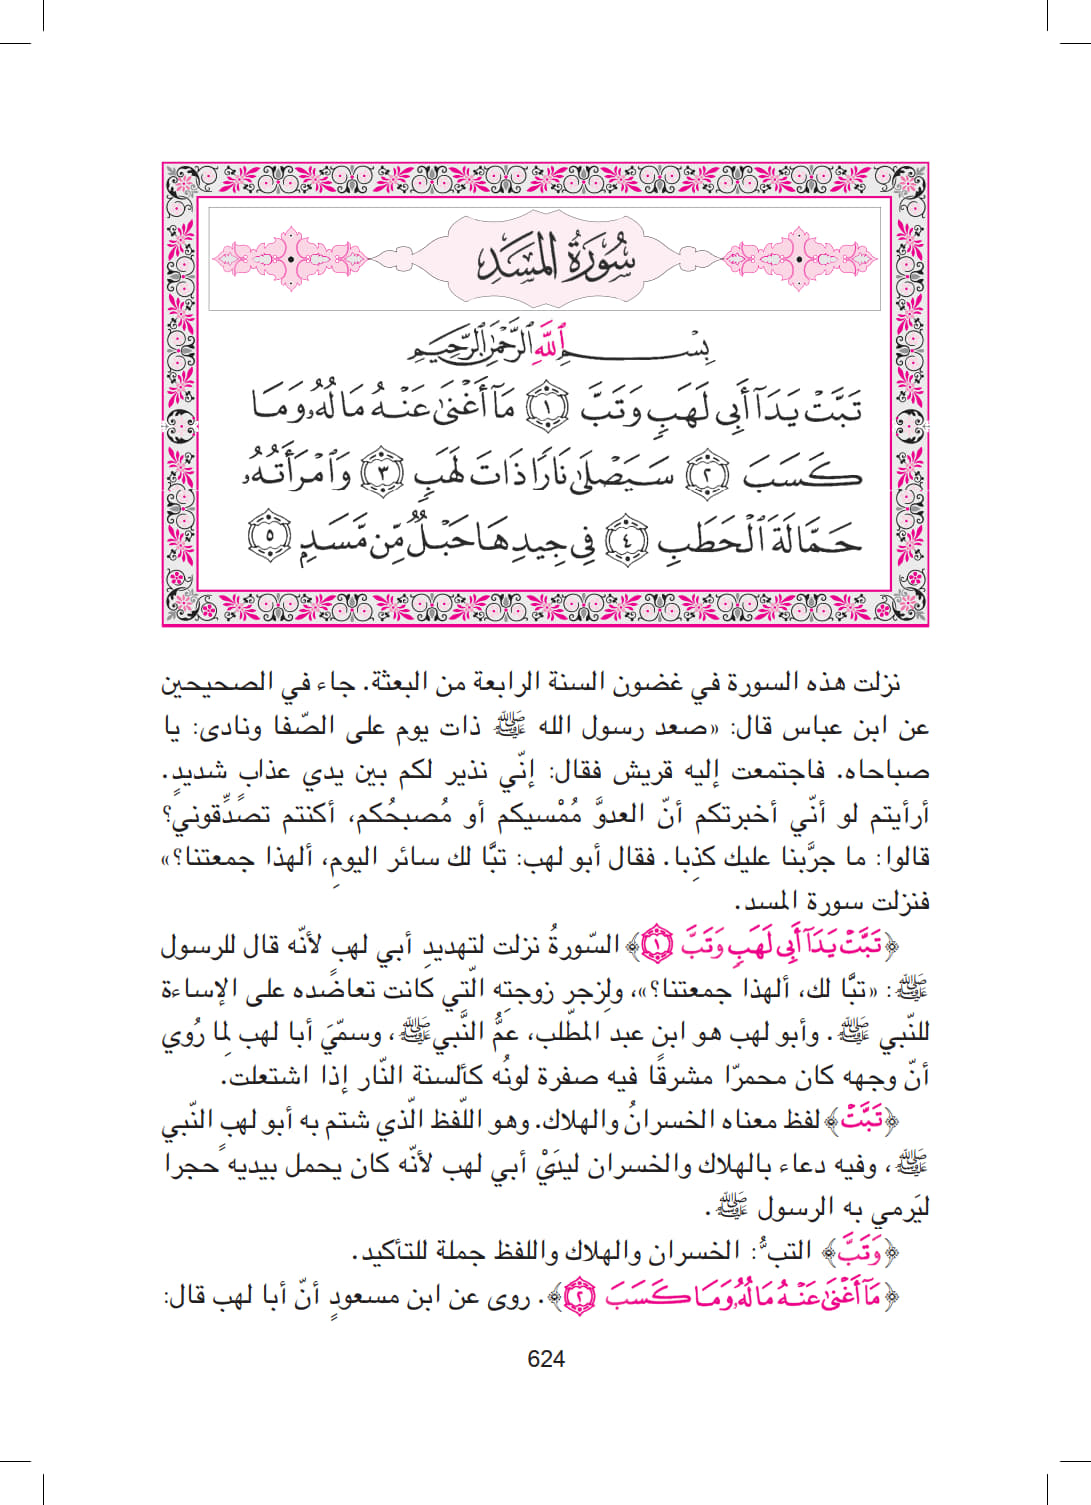 سُورَةُ المَسَدِ
بِسْمِ اللَّهِ الرَّحْمَٰنِ الرَّحِيمِ
تَبَّتْ يَدَآ أَبِي لَهَبٍ وَتَبَّ ۝١ مَآ أَغْنَىٰ عَنْهُ مَالُهُۥ وَمَا
كَسَبَ ۝٢ سَيَصْلَىٰ نَارًا ذَاتَ لَهَبٍ ۝٣ وَٱمْرَأَتُهُۥ
حَمَّالَةَ ٱلْحَطَبِ ۝٤ فِي جِيدِهَا حَبْلٌ مِّن مَّسَدٍ ۝٥
نزلت هذه السورة في غضون السنة الرابعة من البعثة. جاء في الصحيحين
عن ابن عباس قال: «صعد رسول الله ﷺ ذات يوم على الصّفا ونادى: يا
صباحاه. فاجتمعت إليه قريش فقال: إنّي نذير لكم بين يدي عذابٍ شديدٍ.
أرأيتم لو أنّي أخبرتكم أنّ العدوَّ مُمْسيكم أو مُصبحُكم، أكنتم تصدِّقوني؟
قالوا: ما جرَّبنا عليك كذِبا. فقال أبو لهب: تبًّا لك سائر اليومِ، ألهذا جمعتنا؟»
فنزلت سورة المسد.
﴿تَبَّتْ يَدَآ أَبِي لَهَبٍ وَتَبَّ ۝١﴾ السّورةُ نزلت لتهديدِ أبي لهب لأنّه قال للرسول
ﷺ: «تبًّا لك، ألهذا جمعتنا؟»، ولِزجرِ زوجتِه الّتي كانت تعاضده على الإساءة
للنّبي ﷺ. وأبو لهب هو ابن عبد المطّلب، عمُّ النَّبي ﷺ، وسمّيَ أبا لهب لِما رُوي
أنّ وجهه كان محمرّا مشرقًا فيه صفرة لونُه كألسنة النّار إذا اشتعلت.
﴿تَبَّتْ﴾ لفظ معناه الخسرانُ والهلاك. وهو اللّفظ الّذي شتم به أبو لهبٍ النّبي
ﷺ، وفيه دعاء بالهلاك والخسران ليدَيْ أبي لهب لأنّه كان يحمل بيديه حجرا
ليَرمي به الرسول ﷺ.
﴿وَتَبَّ﴾ التبُّ: الخسران والهلاك واللفظ جملة للتأكيد.
﴿مَآ أَغْنَىٰ عَنْهُ مَالُهُۥ وَمَا كَسَبَ ۝٢﴾. روى عن ابن مسعودٍ أنّ أبا لهب قال:
624